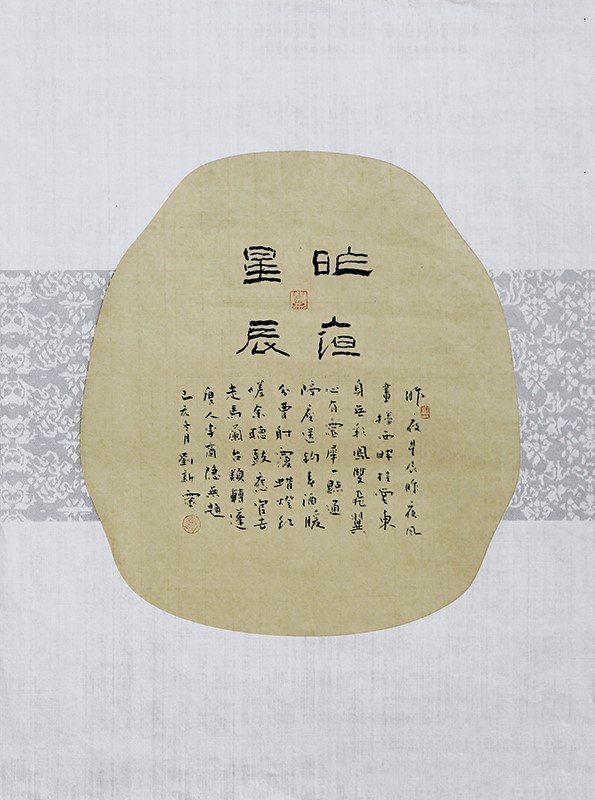 昨夜
星辰
昨夜星辰昨夜风
畫楼西畔桂堂東
身无彩鳳雙飛翼
心有靈犀一點通
隔座送钩春酒暖
分曹射覆蜡燈红
嗟余聽鼓應官去
走馬蘭台類轉蓬
唐人李商隐無題
己亥冬月劉新